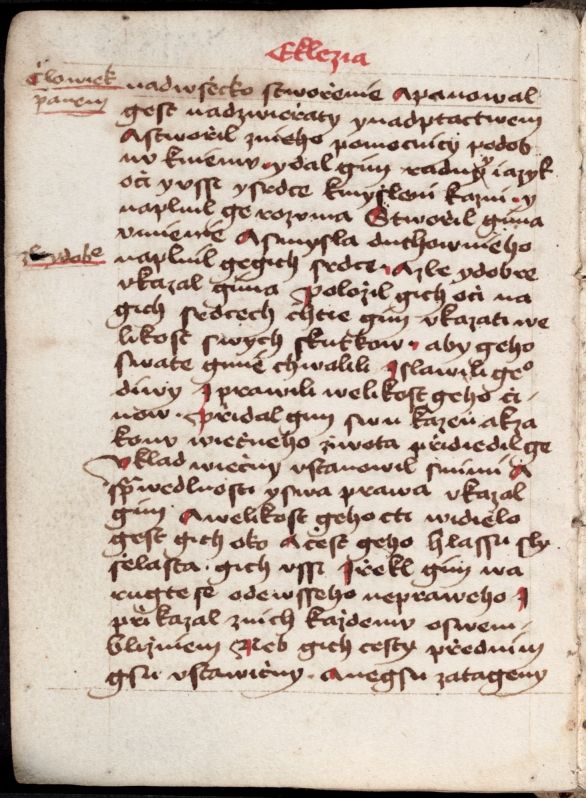 Eklezia
Člowiek
panem
nadwsěcko stwořenie A panowal
gest nadzwieřaty y nadptactwem
A stwořil znieho pomocnicy podob
nu kniemu y dal gim radu y iazyk
oči y ussi y srdce kmysleni kazni y
naplnil ge rozuma Stwořil gima
umienie A smysla duchownieho
zle y dobře
naplnil gegich srdce A zle y dobre
ukazal gima Položil gich oči na
gich srdcech chtie gim ukazati we
likost swych skutkow aby geho
swate gmě chwalili I slawili geo
diwy I prawili welikost geho či-
now. Přidal gim swu kazeň a kza
konu wiečneho žiwota přidiedil ge
Uklad wiečny ustanowil snimi A
sprwedlnosti y swa prawa ukazal
gim A welikost geho cti widielo
gest gich oko A čest geho hlassu sly
ssělasta. gich ussi I řekl gim wa
rugte se odewsseho nepraweho I
přikazal znich každemu oswem
bližniem Neb gich cesty předním
gsu ustawičny. a negsu zatageny